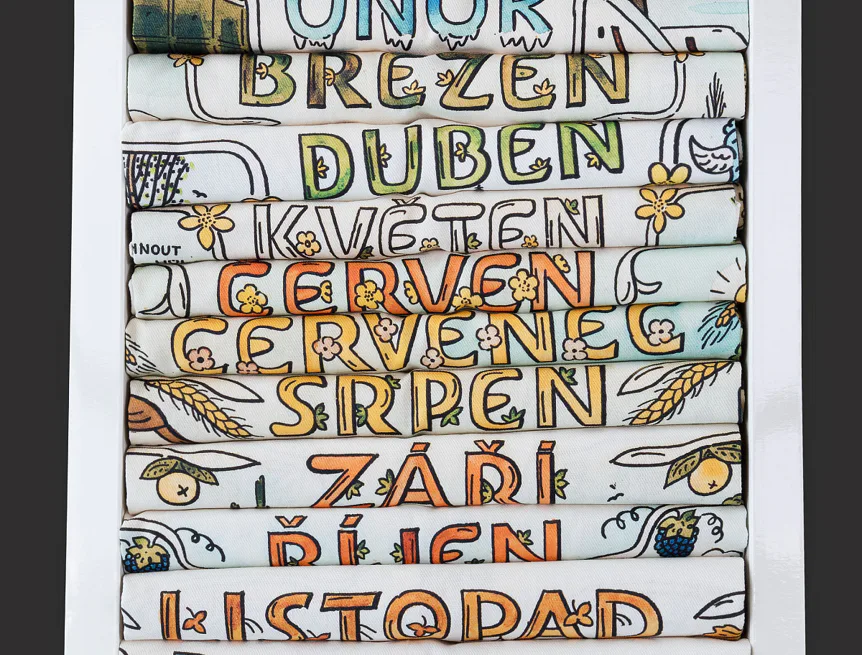 ÚNOR
BŘEZEN
DUBEN
KVĚTEN
HNOUT
ČERVEN
ČERVENEC
SRPEN
ZÁŘÍ
ŘÍJEN
LISTOPAD